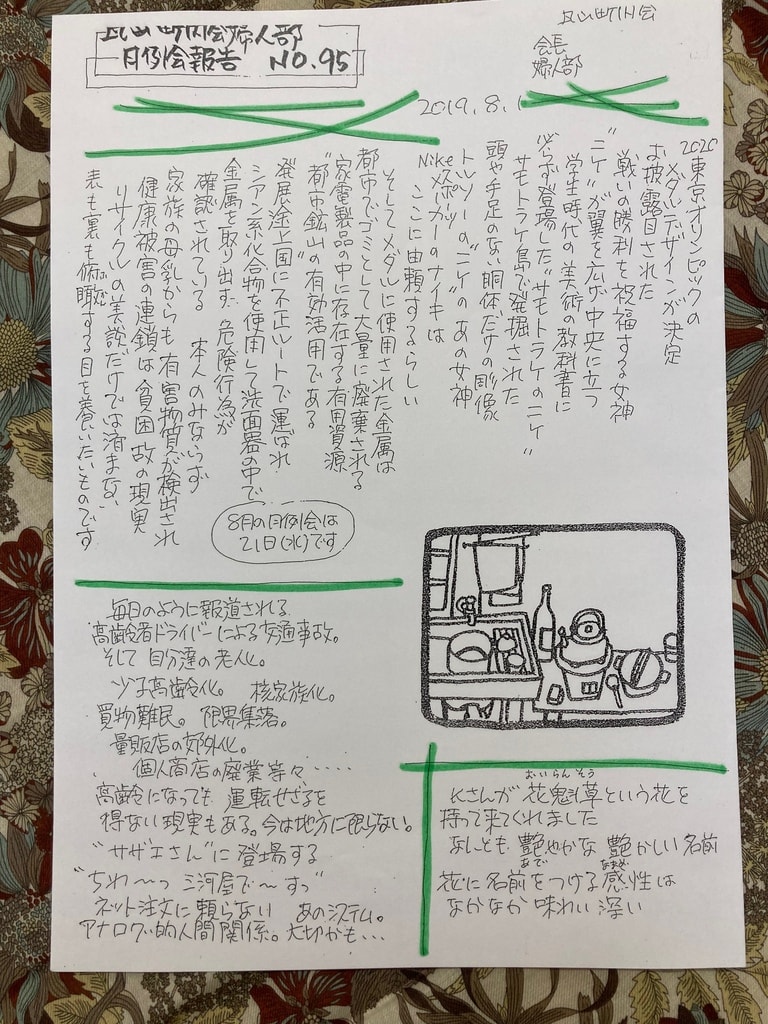 町内会婦人部
月例会報告 NO.95
町内会
会長
婦人部
2019.8.1
2020
東京オリンピックの
メダルデザインが決定
お披露目された
戦いの勝利を祝福する女神
"ニケ"が翼を広げ中央に立つ
学生時代の美術の教科書に
必らず登場した"サモトラケのニケ"
サモトラケ島で発掘された
頭や手足のない胴体だけの彫像
トルソーの"ニケ"のあの女神
Nike
スポーツ
メーカーのナイキは
ここに由頼するらしい
そしてメダルに使用された金属は
都市でゴミとして大量に廃棄される
家電製品の中に存在する有用資源
"都市鉱山"の有効活用である
発展途上国に不正ルートで運ばれ
シアン系化合物を使用して洗面器の中で
金属を取り出す 危険行為が
確認されている 本人のみならず
家族の母乳からも有害物質が検出され
健康被害の連鎖は貧困故の現実
リサイクルの美談だけでは済まない
表も裏も俯瞰する目を養いたいものです
8月の月例会は
21日(水)です
毎日のように報道される
高齢者ドライバーによる交通事故。
そして 自分達の老人化。
少子高齢化。 核家族化。
買物難民。 限界集落。
量販店の郊外化。
個人商店の廃業等々‥‥‥
高齢になっても 運転せざるを
得ない現実もある。今は地方に限らない。
"サザエさん"に登場する
"ちわ〜っ 三河屋で〜すっ"
ネット注文に頼らない あのシステム。
アナログ的人間関係。大切かも・・・
おいらんそう
Kさんが 花魁草という花を
持って来てくれました
なんとも 艶やかな 艶かしい名前
あで なまめ
花に名前をつける感性は
なかなか 味わい 深い